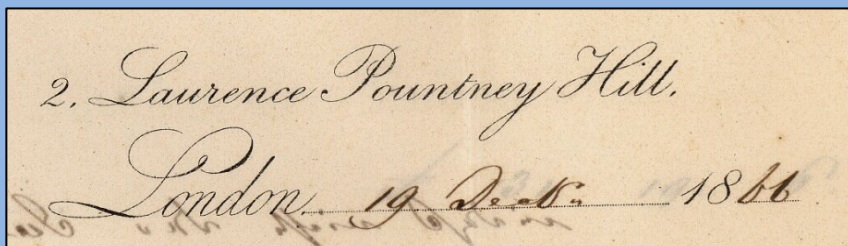 2. Laurence Pountney Hill.
London. 19 Decr. 1866